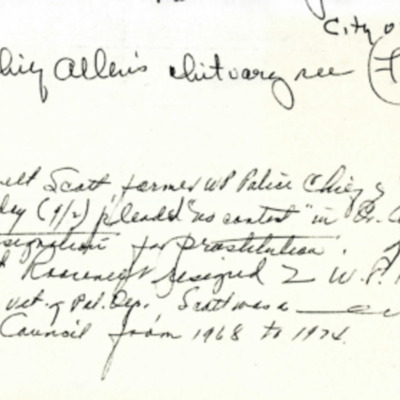 City o
hief Allen's obituary see
elt Scott former WP Police Chief
day (9/2) pleaded "no contest" in
signation for prostitution.
Roosevelt resigned W.P.
vet. of Pol. Dep. Scott was a
Council from 1968 to 1974.